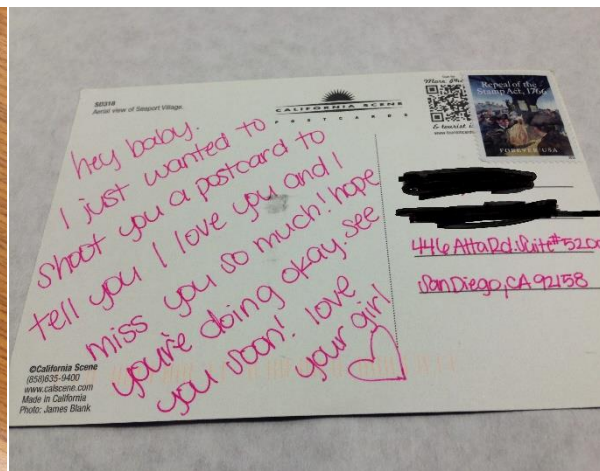 SD318
Aerial view of Seaport Village.
CALIFORNIA SCENE
POSTCARDS
Repeal of the
Stamp Act, 1766
FOREVER USA
hey baby.
I just wanted to
shoot you a postcard to
tell you I love you and I
miss you so much! hope
you're doing okay. see
you soon! love
your girl
446 Alta Rd. Suite #5200
San Diego, CA 92158
©California Scene
(858)635-9400
www.calscene.com
Made in California
Photo: James Blank